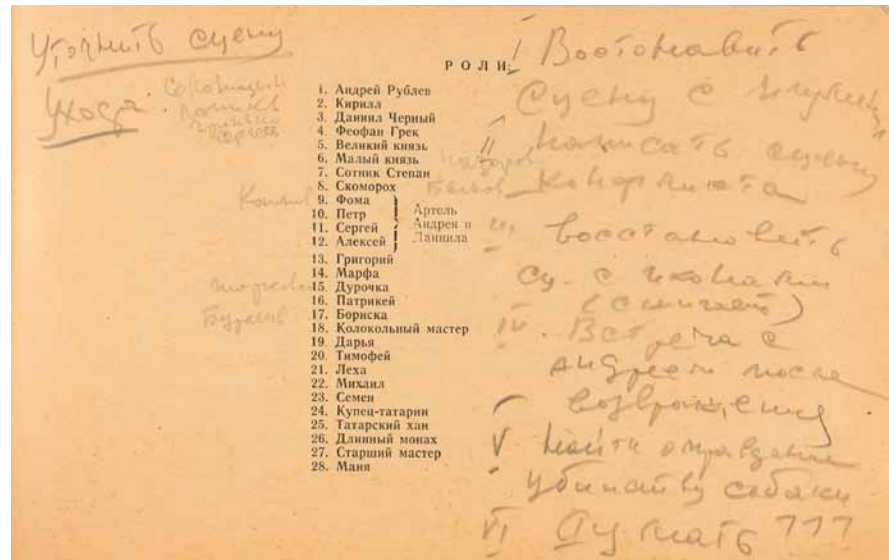 Уточнить сцену
Ухода.
РОЛИ:
1. Андрей Рублев
2. Кирилл
3. Даниил Черный
4. Феофан Грек
5. Великий князь
6. Малый князь
7. Сотник Степан
8. Скоморох
9. Фома
10. Петр
11. Сергей
12. Алексей
Артель
Андрея и
Даниила
13. Григорий
14. Марфа
15. Дурочка
16. Патрикей
17. Бориска
18. Колокольный мастер
19. Дарья
20. Тимофей
21. Леха
22. Михаил
23. Семен
24. Купец-татарин
25. Татарский хан
26. Длинный монах
27. Старший мастер
28. Маня
Быков
I Востонавить
Сцену с
II Написать сцену
Конфликта
III восстановить
сц. с иконами
(снимает)
IV. Встреча с
Андреем после
возвращения
V Найти оправдание
убийству собаки
VI Думать ???